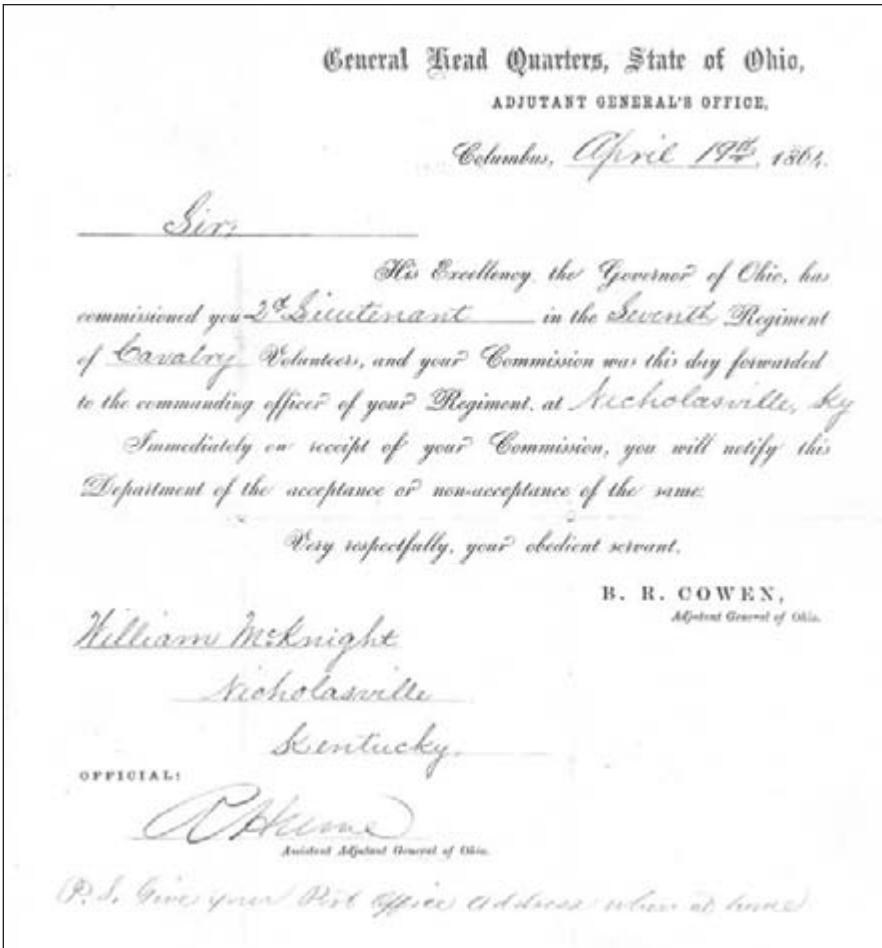 General Head Quarters, State of Ohio,
ADJUTANT GENERAL'S OFFICE,
Columbus, April 19th, 1864.
Sir,
His Excellency, the Governor of Ohio, has
commissioned you 2d Lieutenant in the Seventh Regiment
of Cavalry Volunteers, and your Commission was this day forwarded
to the commanding officer of your Regiment, at Nicholasville, Ky
Immediately on receipt of your Commission, you will notify this
Department of the acceptance or non-acceptance of the same.
Very respectfully, your obedient servant,
B. R. COWEN,
Adjutant General of Ohio.
William McKnight
Nicholasville
Kentucky.
OFFICIAL:
Assistant Adjutant General of Ohio.
P.S. Give your Post Office address when at home